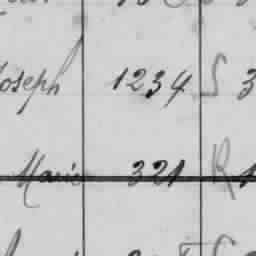 Joseph 1234 S 3
Marie 321 R 1